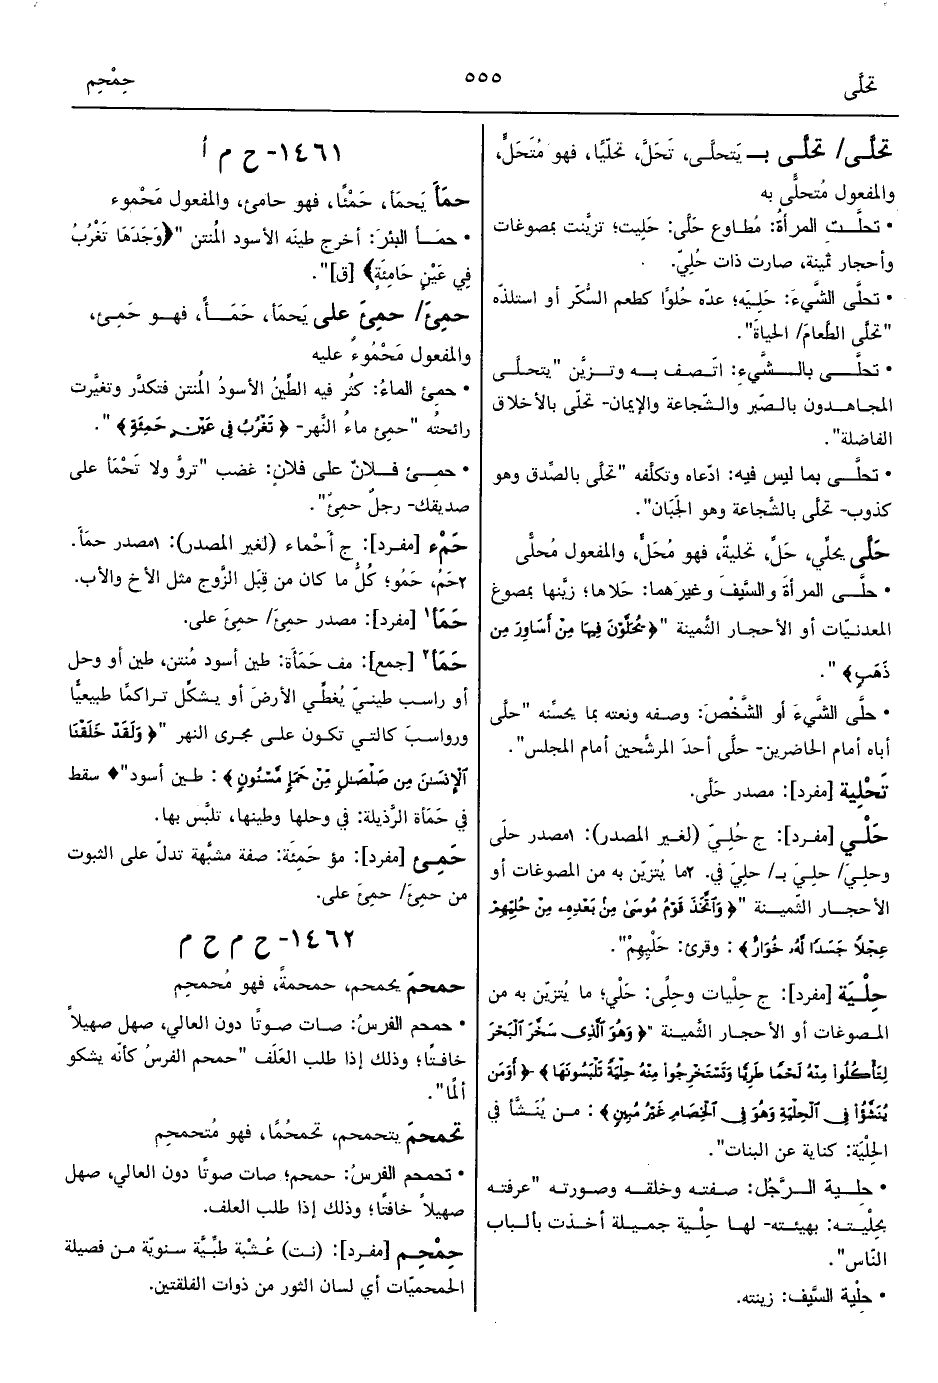 تحلَّى
٥٥٥
حِمْحِم
تحلَّى/ تحلَّى بـ يَتحلَّى، تَحَلَّ، تحَلّيًا، فهو مُتَحَلٍّ،
والمفعول مُتحلًّى به
• تحلَّت المرأةُ: مُطاوع حَلَّى: حَلِيت؛ تزيَّنت بمصوغات
وأحجار ثمينة، صارت ذات حُلِيّ.
• تحلَّى الشَّيءَ: حَلِيَه؛ عدّه حُلوًا كطعم السُّكّر أو استلذّه
"تحلَّى الطَّعامَ/ الحياةَ".
• تحلَّى بالشَّيءِ: اتّصف به وتزيَّن "يتحلَّى
المجاهدون بالصّبر والشَّجاعة والإيمان- تحلَّى بالأخلاق
الفاضلة".
• تحلَّى بما ليس فيه: ادّعاه وتكلّفه "تحلَّى بالصِّدق وهو
كذوب- تحلَّى بالشَّجاعة وهو الجَبَان".
حَلَّى يحلِّي، حَلِّ، تحليةً، فهو مُحَلٍّ، والمفعول مُحلًّى
• حلَّى المرأةَ والسَّيفَ وغيرَهما: حَلاها؛ زيَّنها بمصوغ
المعدنيّات أو الأحجار الثَّمينة "﴿يُحَلَّوْنَ فِيهَا مِنْ أَسَاوِرَ مِن
ذَهَبٍ﴾".
• حلَّى الشَّيءَ أو الشَّخْصَ: وصفه ونعته بما يحسِّنه "حلَّى
أباه أمام الحاضرين- حلَّى أحدَ المرشَّحين أمام المجلس".
تَحْلِية [مفرد]: مصدر حَلَّى.
حَلْي [مفرد]: ج حُلِيّ (لغير المصدر): ١مصدر حلَى
وحلِيَ/ حلِيَ بـ/ حلِيَ في. ٢ما يُتزيّن به من المصوغات أو
الأحجار الثَّمينة "﴿وَاتَّخَذَ قَوْمُ مُوسَىٰ مِنْ بَعْدِهِ مِنْ حُلِيِّهِمْ
عِجْلًا جَسَدًا لَّهُ خُوَارٌ﴾: وقرئ: حَلْيِهِمْ".
حِلْيَة [مفرد]: ج حِلْيات وحلًى: حَلْي؛ ما يُتزيّن به من
المصوغات أو الأحجار الثَّمينة "﴿وَهُوَ الَّذِي سَخَّرَ الْبَحْرَ
لِتَأْكُلُوا مِنْهُ لَحْمًا طَرِيًّا وَتَسْتَخْرِجُوا مِنْهُ حِلْيَةً تَلْبَسُونَهَا﴾-﴿أَوَمَن
يُنَشَّؤُا فِي الْحِلْيَةِ وَهُوَ فِي الْخِصَامِ غَيْرُ مُبِينٍ﴾: من يُنَشَّأ في
الحِلْيَة: كناية عن البنات".
• حلية الرَّجُل: صفته وخلقه وصورته "عرفته
بحِليته: بهيئته- لها حِلْية جميلة أخذت بألباب
النّاس".
• حلْية السَّيف: زينته.
١٤٦١- ح م أ
حمَأَ يَحمَأ، حَمْئًا، فهو حامئ، والمفعول مَحْموء
• حمَأ البئرَ: أخرج طينَه الأسود المُنتن "﴿وَجَدَهَا تَغْرُبُ
فِي عَيْنٍ حَامِئَةٍ﴾ [ق]".
حمِئَ/ حمِئَ على يَحمَأ، حَمَأً، فهو حَمِئ،
والمفعول مَحْمُوءٌ عليه
• حمِئ الماءُ: كثُر فيه الطِّينُ الأسودُ المُنتن فتكدَّر وتغيَّرت
رائحتُه "حمِئ ماءُ النَّهر- ﴿تَغْرُبُ فِي عَيْنٍ حَمِئَةٍ﴾".
• حمِئ فلانٌ على فلان: غضب "تروَّ ولا تَحْمَأ على
صديقك- رجلٌ حمِئٌ".
حَمْء [مفرد]: ج أَحْماء (لغير المصدر): ١مصدر حمَأَ.
٢حَمُ، حَمُو؛ كُلُّ ما كان من قِبَل الزَّوج مثل الأخ والأب.
حَمَأ١ [مفرد]: مصدر حمِئَ/ حمِئَ على.
حَمَأ٢ [جمع]: مف حَمَأَة: طين أسود مُنتن، طين أو وحل
أو راسب طينيّ يُغطِّي الأرضَ أو يشكِّل تراكمًا طبيعيًّا
ورواسبَ كالتي تكون على مجرى النهر "﴿وَلَقَدْ خَلَقْنَا
الْإِنسَانَ مِن صَلْصَالٍ مِّنْ حَمَإٍ مَّسْنُونٍ﴾: طين أسود"♦ سقط
في حَمَأة الرَّذيلة: في وحلها وطينها، تلبَّس بها.
حَمِئ [مفرد]: مؤ حَمِئَة: صفة مشبَّهة تدلّ على الثبوت
من حمِئَ/ حمِئَ على.
١٤٦٢- ح م ح م
حمحمَ يحمحم، حمحمةً، فهو مُحمحِم
• حمحم الفرسُ: صات صوتًا دون العالي، صهل صهيلاً
خافتًا؛ وذلك إذا طلب العَلَف "حمحم الفرسُ كأنّه يشكو
ألمًا".
تحمحمَ يتحمحم، تحمحُمًا، فهو مُتحمحِم
• تحمحم الفرسُ: حمحم؛ صات صوتًا دون العالي، صهل
صهيلاً خافتًا؛ وذلك إذا طلب العلف.
حِمْحِم [مفرد]: (نت) عُشبة طبِّيَّة سنويّة من فصيلة
الحمحميّات أي لسان الثور من ذوات الفلقتين.